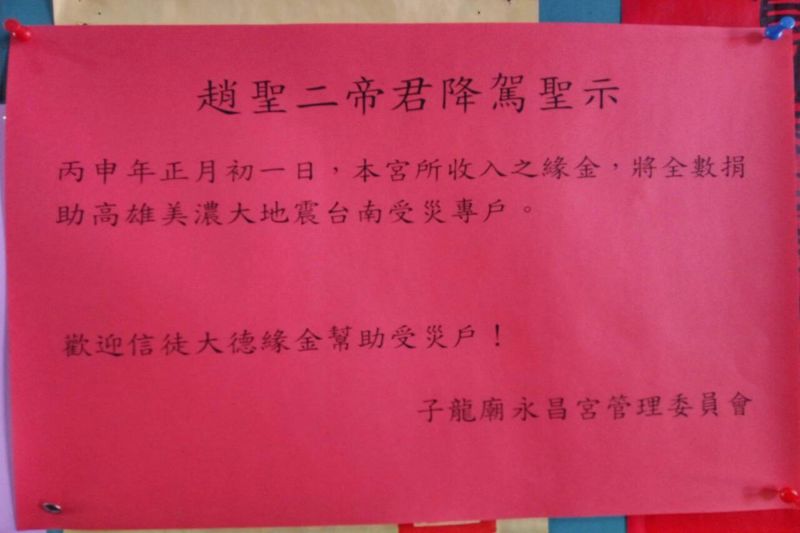 趙聖二帝君降駕聖示
丙申年正月初一日，本宮所收入之緣金，將全數捐
助高雄美濃大地震台南受災專戶。
歡迎信徒大德緣金幫助受災戶！
子龍廟永昌宮管理委員會